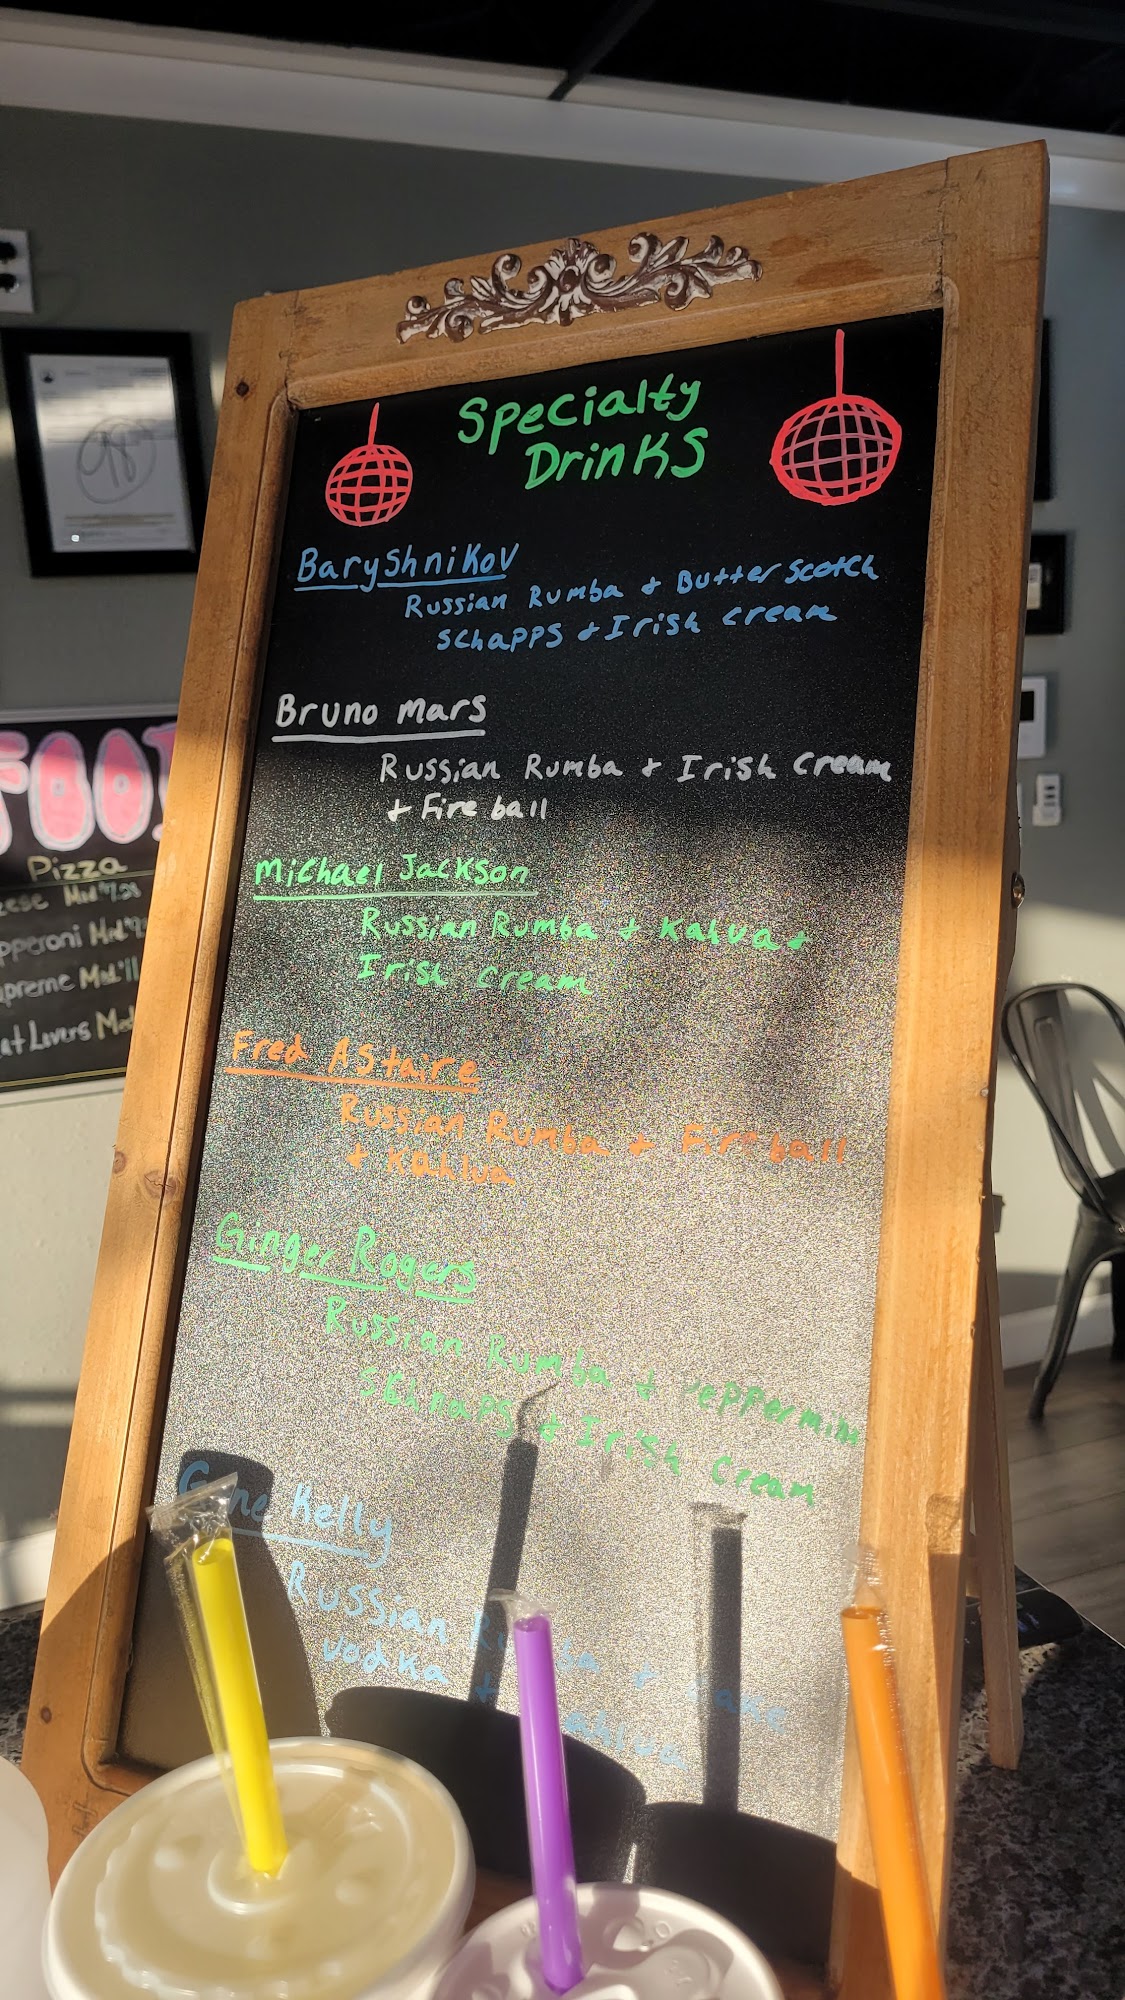 Specialty
Drinks
Baryshnikov
Russian Rumba + Butterscotch
Schapps + Irish cream
Bruno Mars
Russian Rumba + Irish Cream
+ Fireball
Michael Jackson
Russian Rumba + Kalua +
Irish Cream
Fred Astaire
Russian Rumba + Fireball
+ Kahlua
Ginger Rogers
Russian Rumba + Peppermint
Schnaps + Irish Cream
Gene Kelly
Russian Rumba + Cake
Vodka + Kahlua
98
Pizza
Med
Med
Med
Lovers